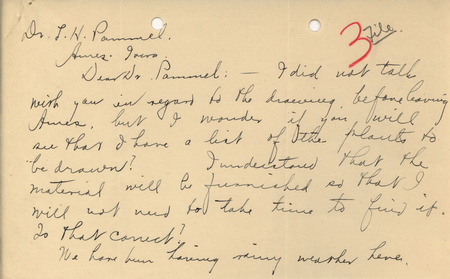 3 File.
Dr. L. H. Pammel.
Ames. Iowa.
Dear Dr. Pammel: — I did not talk
with you in regard to the drawing before leaving
Ames, but I wonder if you will
see that I have a list of the plants to
be drawn? I understand that the
material will be furnished so that I
will not need to take time to find it.
Is that correct?
We have been having rainy weather here.